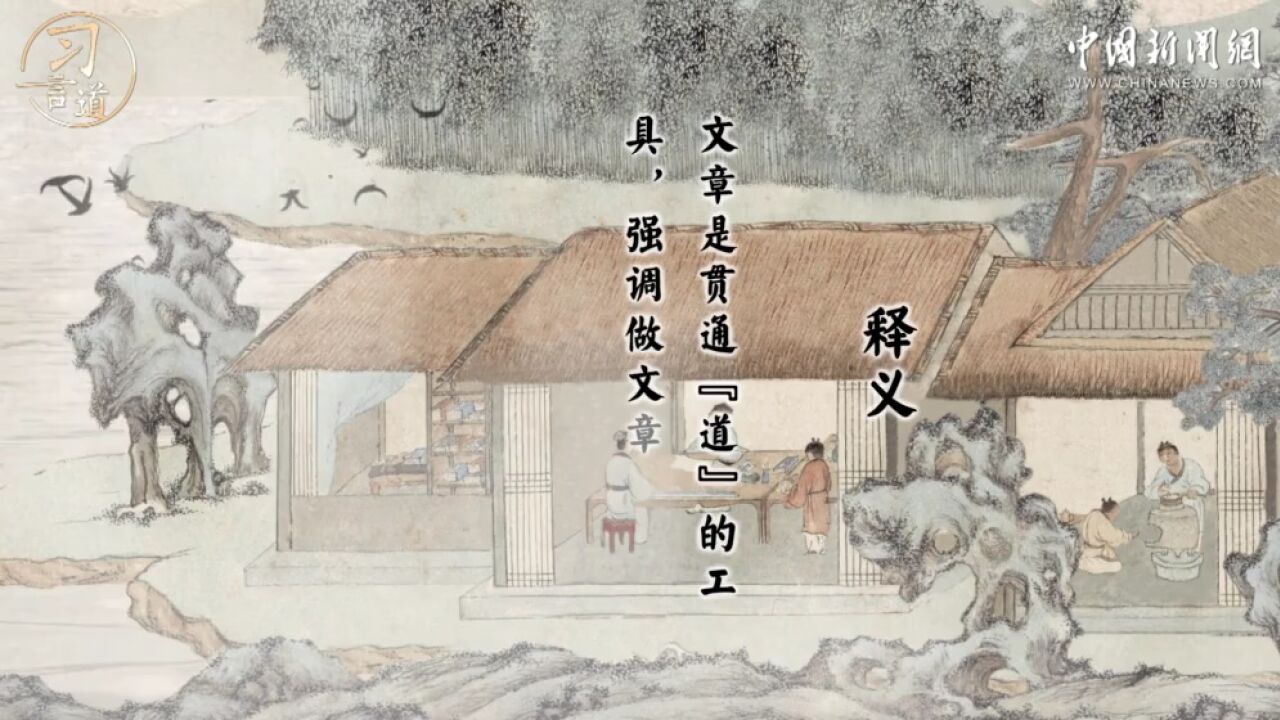 习
言道
中国新闻网
WWW.CHINANEWS.COM
释义
文章是贯通『道』的工
具，强调做文章